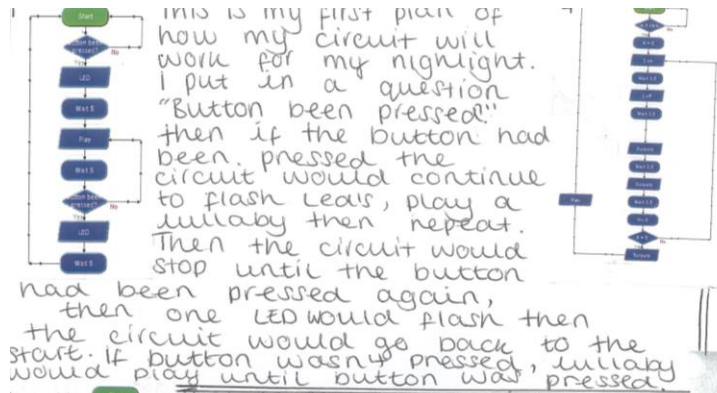 Start
Button been
pressed?
No
Yes
LED
Wait 5
Play
Wait 5
Button been
pressed?
No
Yes
LED
Wait 5
This is my first plan of
how my circuit will
work for my nightlight.
I put in a question
"Button been pressed?"
then if the button had
been. pressed the
circuit would continue
to flash Leds, play a
lullaby then repeat.
Then the circuit would
stop until the button
had been pressed again,
then one LED would flash then
the circuit would go back to the
start. If button wasn't pressed, lullaby
would play until button was pressed.